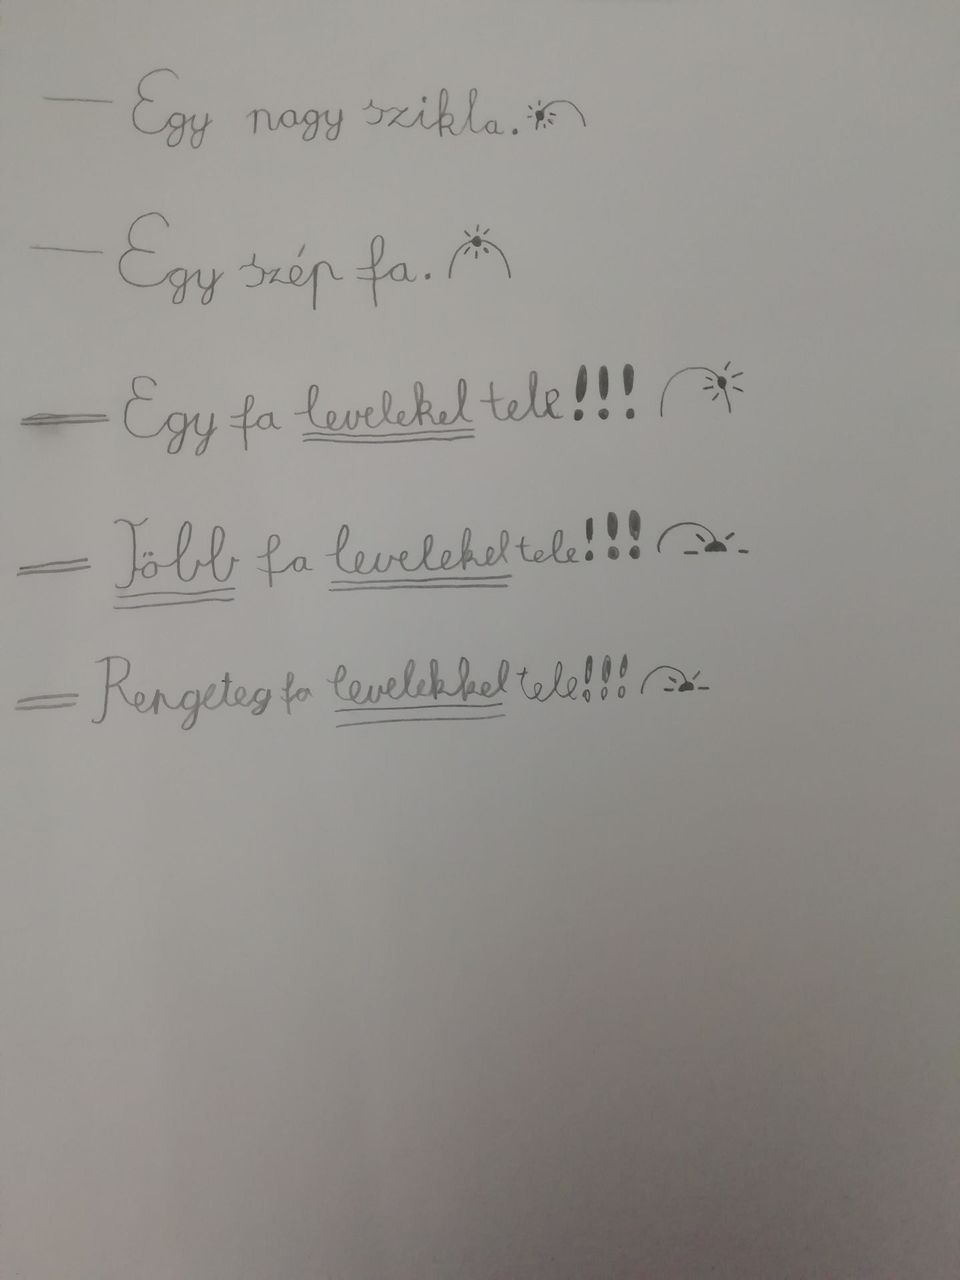 — Egy nagy szikla.
— Egy szép fa.
— Egy fa levelekel tele!!!
— Több fa levelekel tele!!!
— Rengeteg fa levelekkel tele!!!